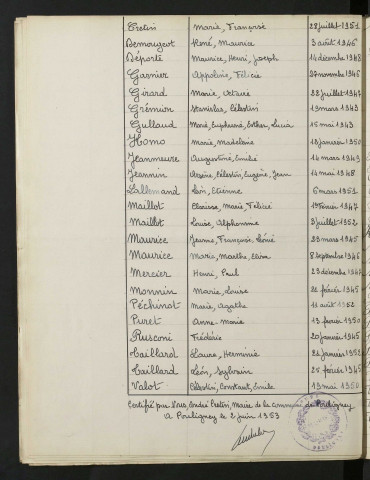 Cretin Marie, Françoise 28 juillet 1951
Demougeot René, Maurice 3 août 1946
Déporte Maurice, Henri, Joseph 14 décembre 1948
Garnier Appoline, Félicie 27 novembre 1946
Girard Marie, 22 juillet 1947
Grémion Stanislas, Célestin 19 mars 1943
Gullaud Euphrasie, Esther, Lucia 15 mai 1943
Homo Marie, Madeleine 18 janvier 1950
Jeanmeure Augustine, Emilie 14 mars 1949
Jeannin Arsène, Célestin, Eugène, Jean 14 mai 1948
Lallemand Léon, Etienne 6 mars 1951
Maillot Clarisse, Marie, Félicie février 1947
Maillot Louise, Alphonsine juillet 1952
Maurice Jeanne, Françoise, 29 mars 1945
Maurice Marie, Marthe, 8 septembre 1946
Mercier Henri, Paul 23 décembre
Monnin Marie, Louise 21 février 1945
Péchinot Marie, Agathe 11 août 1952
Puret Anne-Marie 13 février 1950
Rusconi Frédéric 20 janvier 1945
Taillard Laure, Herminie 21 janvier 1952
Taillard Léon, Sylvain 25 février 1945
Valot Célestin, Constant, Emile 19 mai 1950
Certifié par Nous, André Cretin, Maire de la commune de Pouligney
A Pouligney le 2 juin 1953